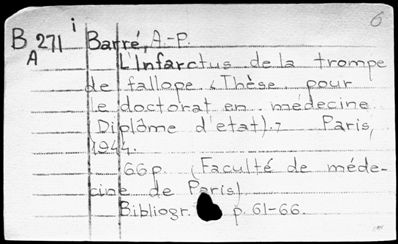 6
B 271 i Barré, A.-P.
A
L'Infarctus de la trompe
de fallope. (Thèse pour
le doctorat en médecine
Diplôme d'etat). Paris,
1944.
66p. (Faculté de méde-
cine de Paris)
Bibliogr. p. 61-66.